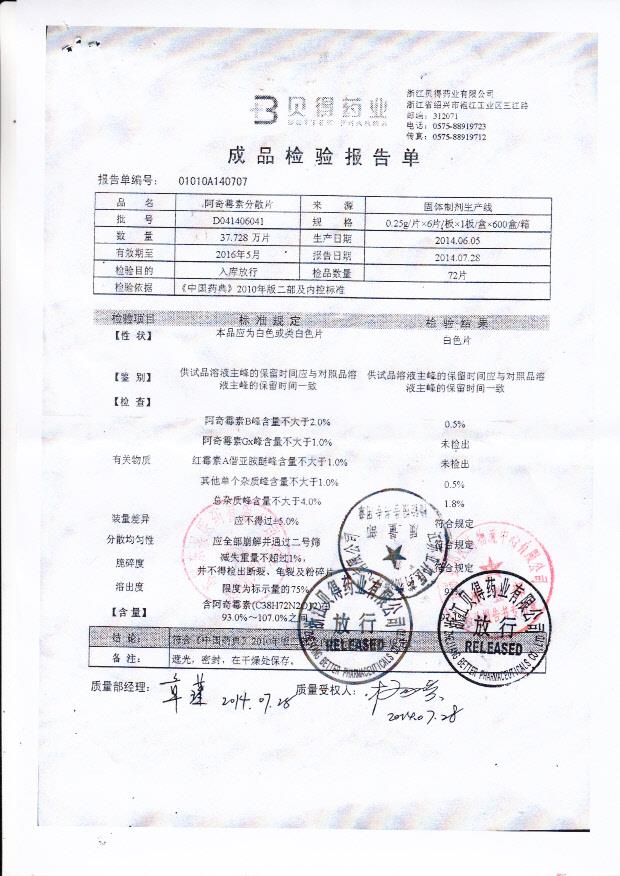 贝得药业
BETTER PHARMA
浙江贝得药业有限公司
浙江省绍兴市袍江工业区三江路
邮编：312071
电话：0575-88919723
传真：0575-88919712
成品检验报告单
报告单编号： 01010A140707
品 名 阿奇霉素分散片 来 源 固体制剂生产线
批 号 D041406041 规 格 0.25g/片×6片/板×1板/盒×600盒/箱
数 量 37.728 万片 生产日期 2014.06.05
有效期至 2016年5月 报告日期 2014.07.28
检验目的 入库放行 检品数量 72片
检验依据 《中国药典》2010年版二部及内控标准
检验项目 标准规定 检验结果
【性 状】 本品应为白色或类白色片 白色片
【鉴 别】 供试品溶液主峰的保留时间应与对照品溶 供试品溶液主峰的保留时间应与对照品溶
液主峰的保留时间一致 液主峰的保留时间一致
【检 查】
阿奇霉素B峰含量不大于2.0% 0.5%
阿奇霉素Gx峰含量不大于1.0% 未检出
有关物质 红霉素A偕亚胺醚峰含量不大于1.0% 未检出
其他单个杂质峰含量不大于1.0% 0.5%
总杂质峰含量不大于4.0% 1.8%
装量差异 应不得过±5.0% 符合规定
分散均匀性 应全部崩解并通过二号筛 符合规定
脆碎度 减失重量不超过1%， 符合规定
并不得检出断裂、龟裂及粉碎片
溶出度 限度为标示量的75%
【含 量】 含阿奇霉素(C38H72N2O12)
93.0%～107.0%之间
结 论： 符合《中国药典》2010年版
备 注： 遮光，密封，在干燥处保存。
浙江贝得药业有限公司
放行
RELEASED
ZHEJIANG BETTER PHARMACEUTICALS CO.,LTD.
浙江贝得药业有限公司
放行
RELEASED
ZHEJIANG BETTER PHARMACEUTICALS CO.,LTD.
质量部经理： 2014.07.28 质量受权人：
2014.07.28